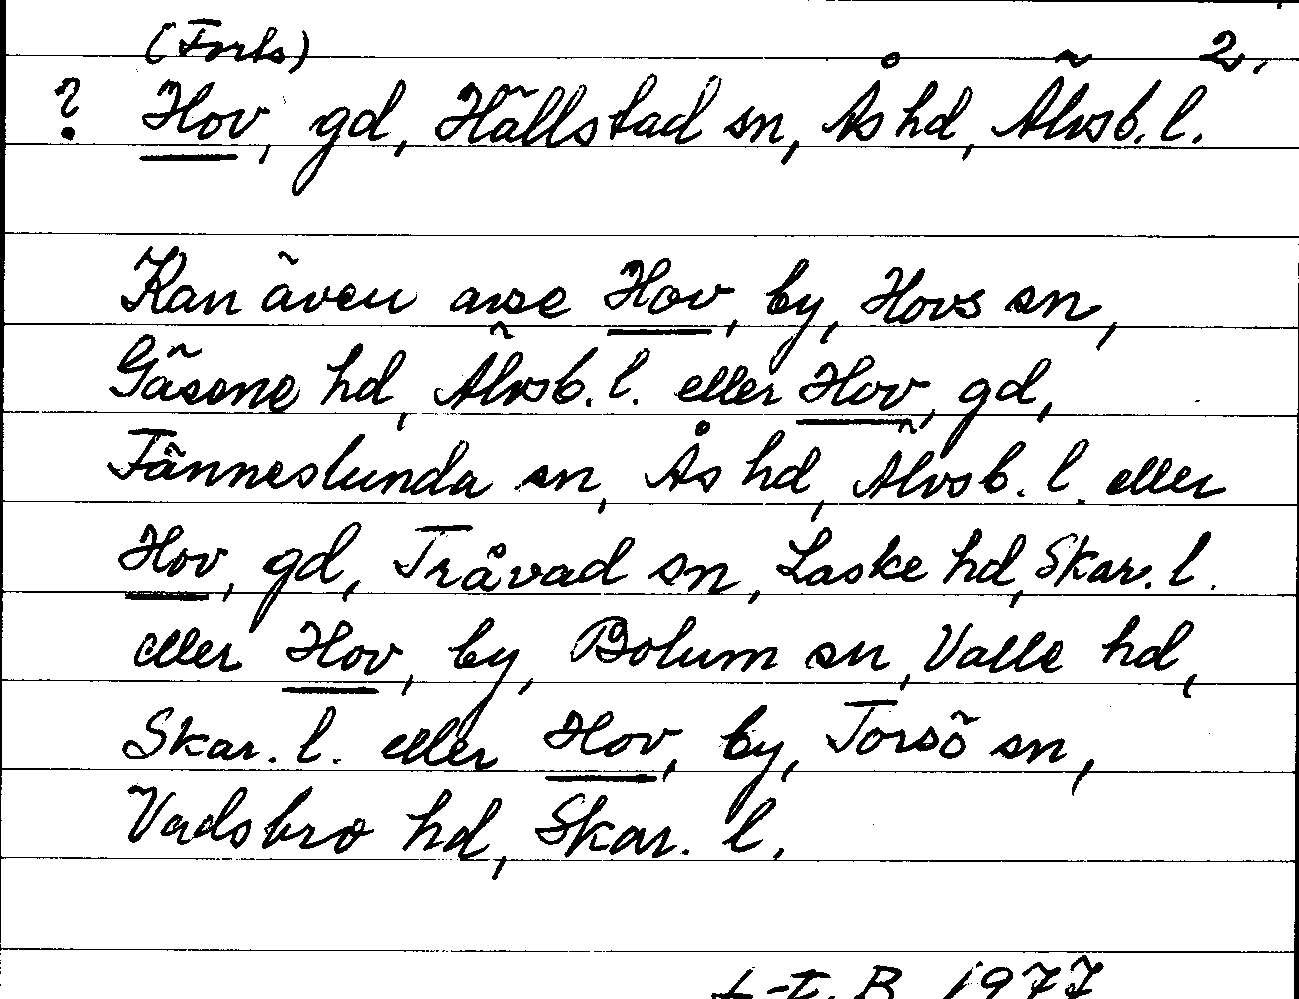 (Forts) 2.
? Hov, gd, Hällstad sn, Ås hd, Älvsb. l.
Kan även avse Hov, by, Hovs sn,
Gäsene hd, Älvsb. l. eller Hov, gd,
Fänneslunda sn, Ås hd, Älvsb. l. eller
Hov, gd, Tråvad sn, Laske hd, Skar. l.
eller Hov, by, Bolum sn, Valle hd,
Skar. l. eller Hov, by, Torsö sn,
Vadsbro hd, Skar. l.
B. 1977